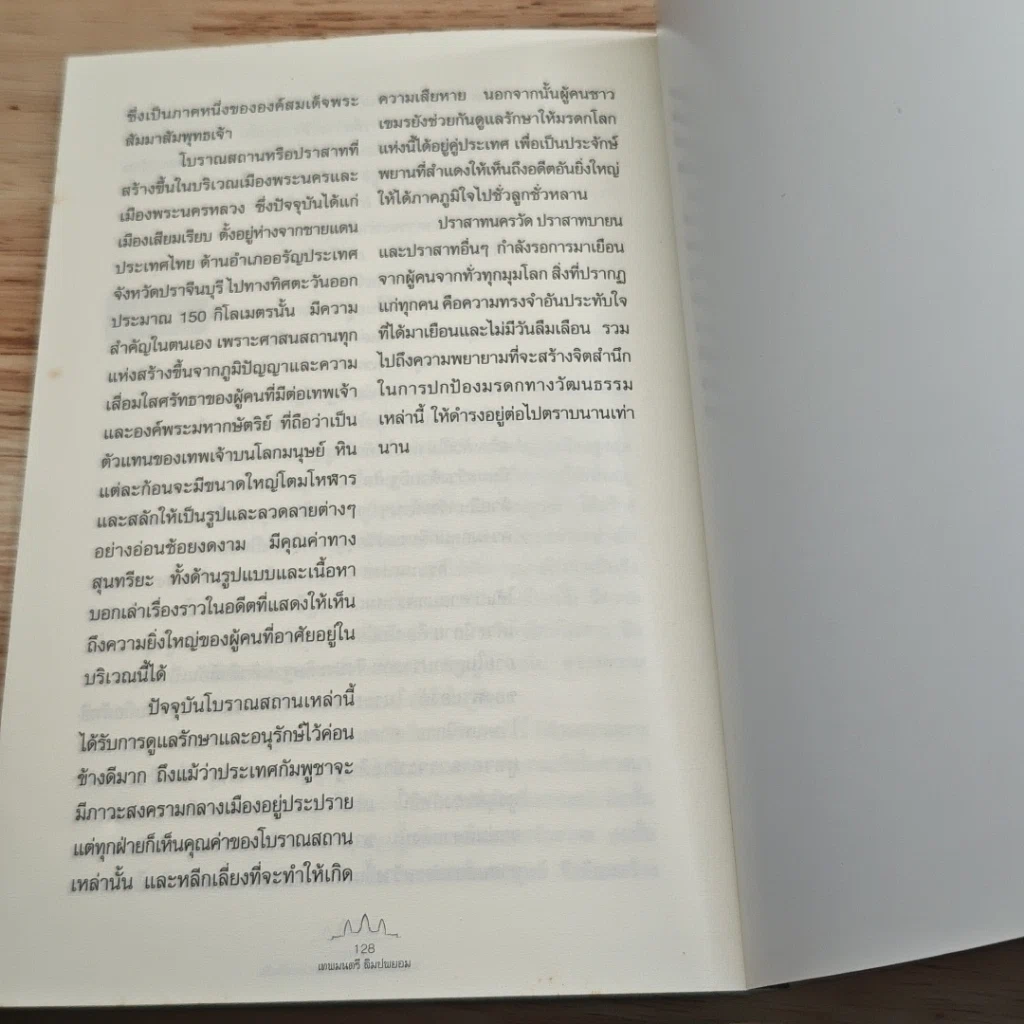 ซึ่งเป็นภาคหนึ่งขององค์สมเด็จพระ
สัมมาสัมพุทธเจ้า
โบราณสถานหรือปราสาทที่
สร้างขึ้นในบริเวณเมืองพระนครและ
เมืองพระนครหลวง ซึ่งปัจจุบันได้แก่
เมืองเสียมเรียบ ตั้งอยู่ห่างจากชายแดน
ประเทศไทย ด้านอำเภออรัญประเทศ
จังหวัดปราจีนบุรี ไปทางทิศตะวันออก
ประมาณ 150 กิโลเมตรนั้น มีความ
สำคัญในตนเอง เพราะศาสนสถานทุก
แห่งสร้างขึ้นจากภูมิปัญญาและความ
เลื่อมใสศรัทธาของผู้คนที่มีต่อเทพเจ้า
และองค์พระมหากษัตริย์ ที่ถือว่าเป็น
ตัวแทนของเทพเจ้าบนโลกมนุษย์ หิน
แต่ละก้อนจะมีขนาดใหญ่โตมโหฬาร
และสลักให้เป็นรูปและลวดลายต่างๆ
อย่างอ่อนช้อยงดงาม มีคุณค่าทาง
สุนทรียะ ทั้งด้านรูปแบบและเนื้อหา
บอกเล่าเรื่องราวในอดีตที่แสดงให้เห็น
ถึงความยิ่งใหญ่ของผู้คนที่อาศัยอยู่ใน
บริเวณนี้ได้
ปัจจุบันโบราณสถานเหล่านี้
ได้รับการดูแลรักษาและอนุรักษ์ไว้ค่อน
ข้างดีมาก ถึงแม้ว่าประเทศกัมพูชาจะ
มีภาวะสงครามกลางเมืองอยู่ประปราย
แต่ทุกฝ่ายก็เห็นคุณค่าของโบราณสถาน
เหล่านั้น และหลีกเลี่ยงที่จะทำให้เกิด
ความเสียหาย นอกจากนั้นผู้คนชาว
เขมรยังช่วยกันดูแลรักษาให้มรดกโลก
แห่งนี้ได้อยู่คู่ประเทศ เพื่อเป็นประจักษ์
พยานที่สำแดงให้เห็นถึงอดีตอันยิ่งใหญ่
ให้ได้ภาคภูมิใจไปชั่วลูกชั่วหลาน
ปราสาทนครวัด ปราสาทบายน
และปราสาทอื่นๆ กำลังรอการมาเยือน
จากผู้คนจากทั่วทุกมุมโลก สิ่งที่ปรากฏ
แก่ทุกคน คือความทรงจำอันประทับใจ
ที่ได้มาเยือนและไม่มีวันลืมเลือน รวม
ไปถึงความพยายามที่จะสร้างจิตสำนึก
ในการปกป้องมรดกทางวัฒนธรรม
เหล่านี้ ให้ดำรงอยู่ต่อไปตราบนานเท่า
นาน
128
เทพมนตรี ลิมปพยอม